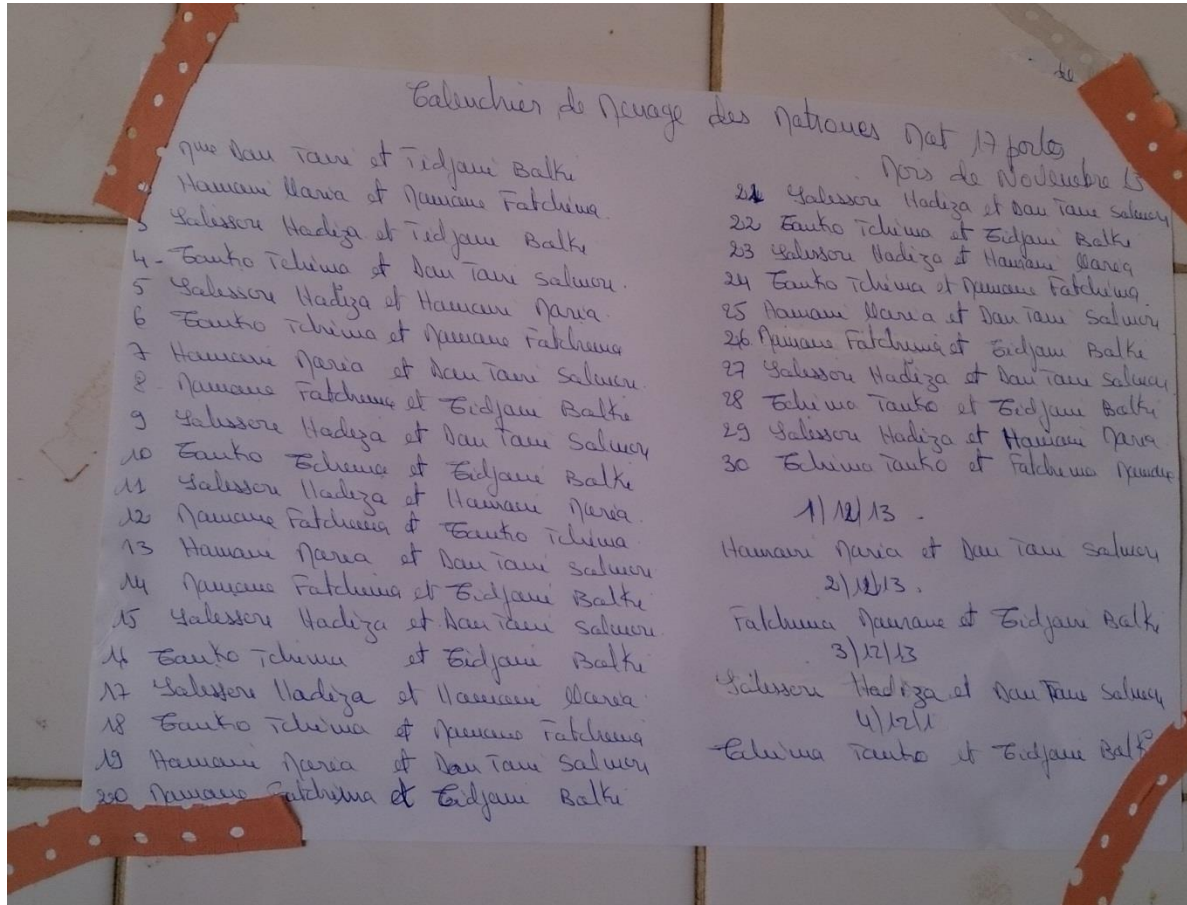 de
Calendrier de Menage des Matrones Mat 17 portes
Mois de Novembre 13
Mme Dan Tani et Tidjani Balki
Hamani Maria et Namane Fatchima
3 Salissou Hadiza et Tidjani Balki
4 - Tanko Tchima et Dan Tani Salmou.
5 Salissou Hadiza et Hamani Maria
6 Tanko Tchima et Namane Fatchima
7 Hamani Maria et Dan Tani Salmou
8 Namane Fatchima et Tidjani Balki
9 Salissou Hadiza et Dan Tani Salmou
10 Tanko Tchima et Tidjani Balki
11 Salissou Hadiza et Hamani Maria
12 Namane Fatchima et Tanko Tchima
13 Hamani Maria et Dan Tani Salmou
14 Namane Fatchima et Tidjani Balki
15 Salissou Hadiza et Dan Tani Salmou
16 Tanko Tchima et Tidjani Balki
17 Salissou Hadiza et Hamani Maria
18 Tanko Tchima et Namane Fatchima
19 Hamani Maria et Dan Tani Salmou
20 Namane Fatchima et Tidjani Balki
21 Salissou Hadiza et Dan Tani Salmou
22 Tanko Tchima et Tidjani Balki
23 Salissou Hadiza et Hamani Maria
24 Tanko Tchima et Namane Fatchima.
25 Hamani Maria et Dan Tani Salmou
26 Namane Fatchima et Tidjani Balki
27 Salissou Hadiza et Dan Tani Salmou
28 Tchima Tanko et Tidjani Balki
29 Salissou Hadiza et Hamani Maria
30 Tchima Tanko et Fatchima Namane
1/12/13.
Hamani Maria et Dan Tani Salmou
2/12/13.
Fatchima Namane et Tidjani Balki
3/12/13
Salissou Hadiza et Dan Tani Salmou
4/12/1
Tchima Tanko et Tidjani Balki